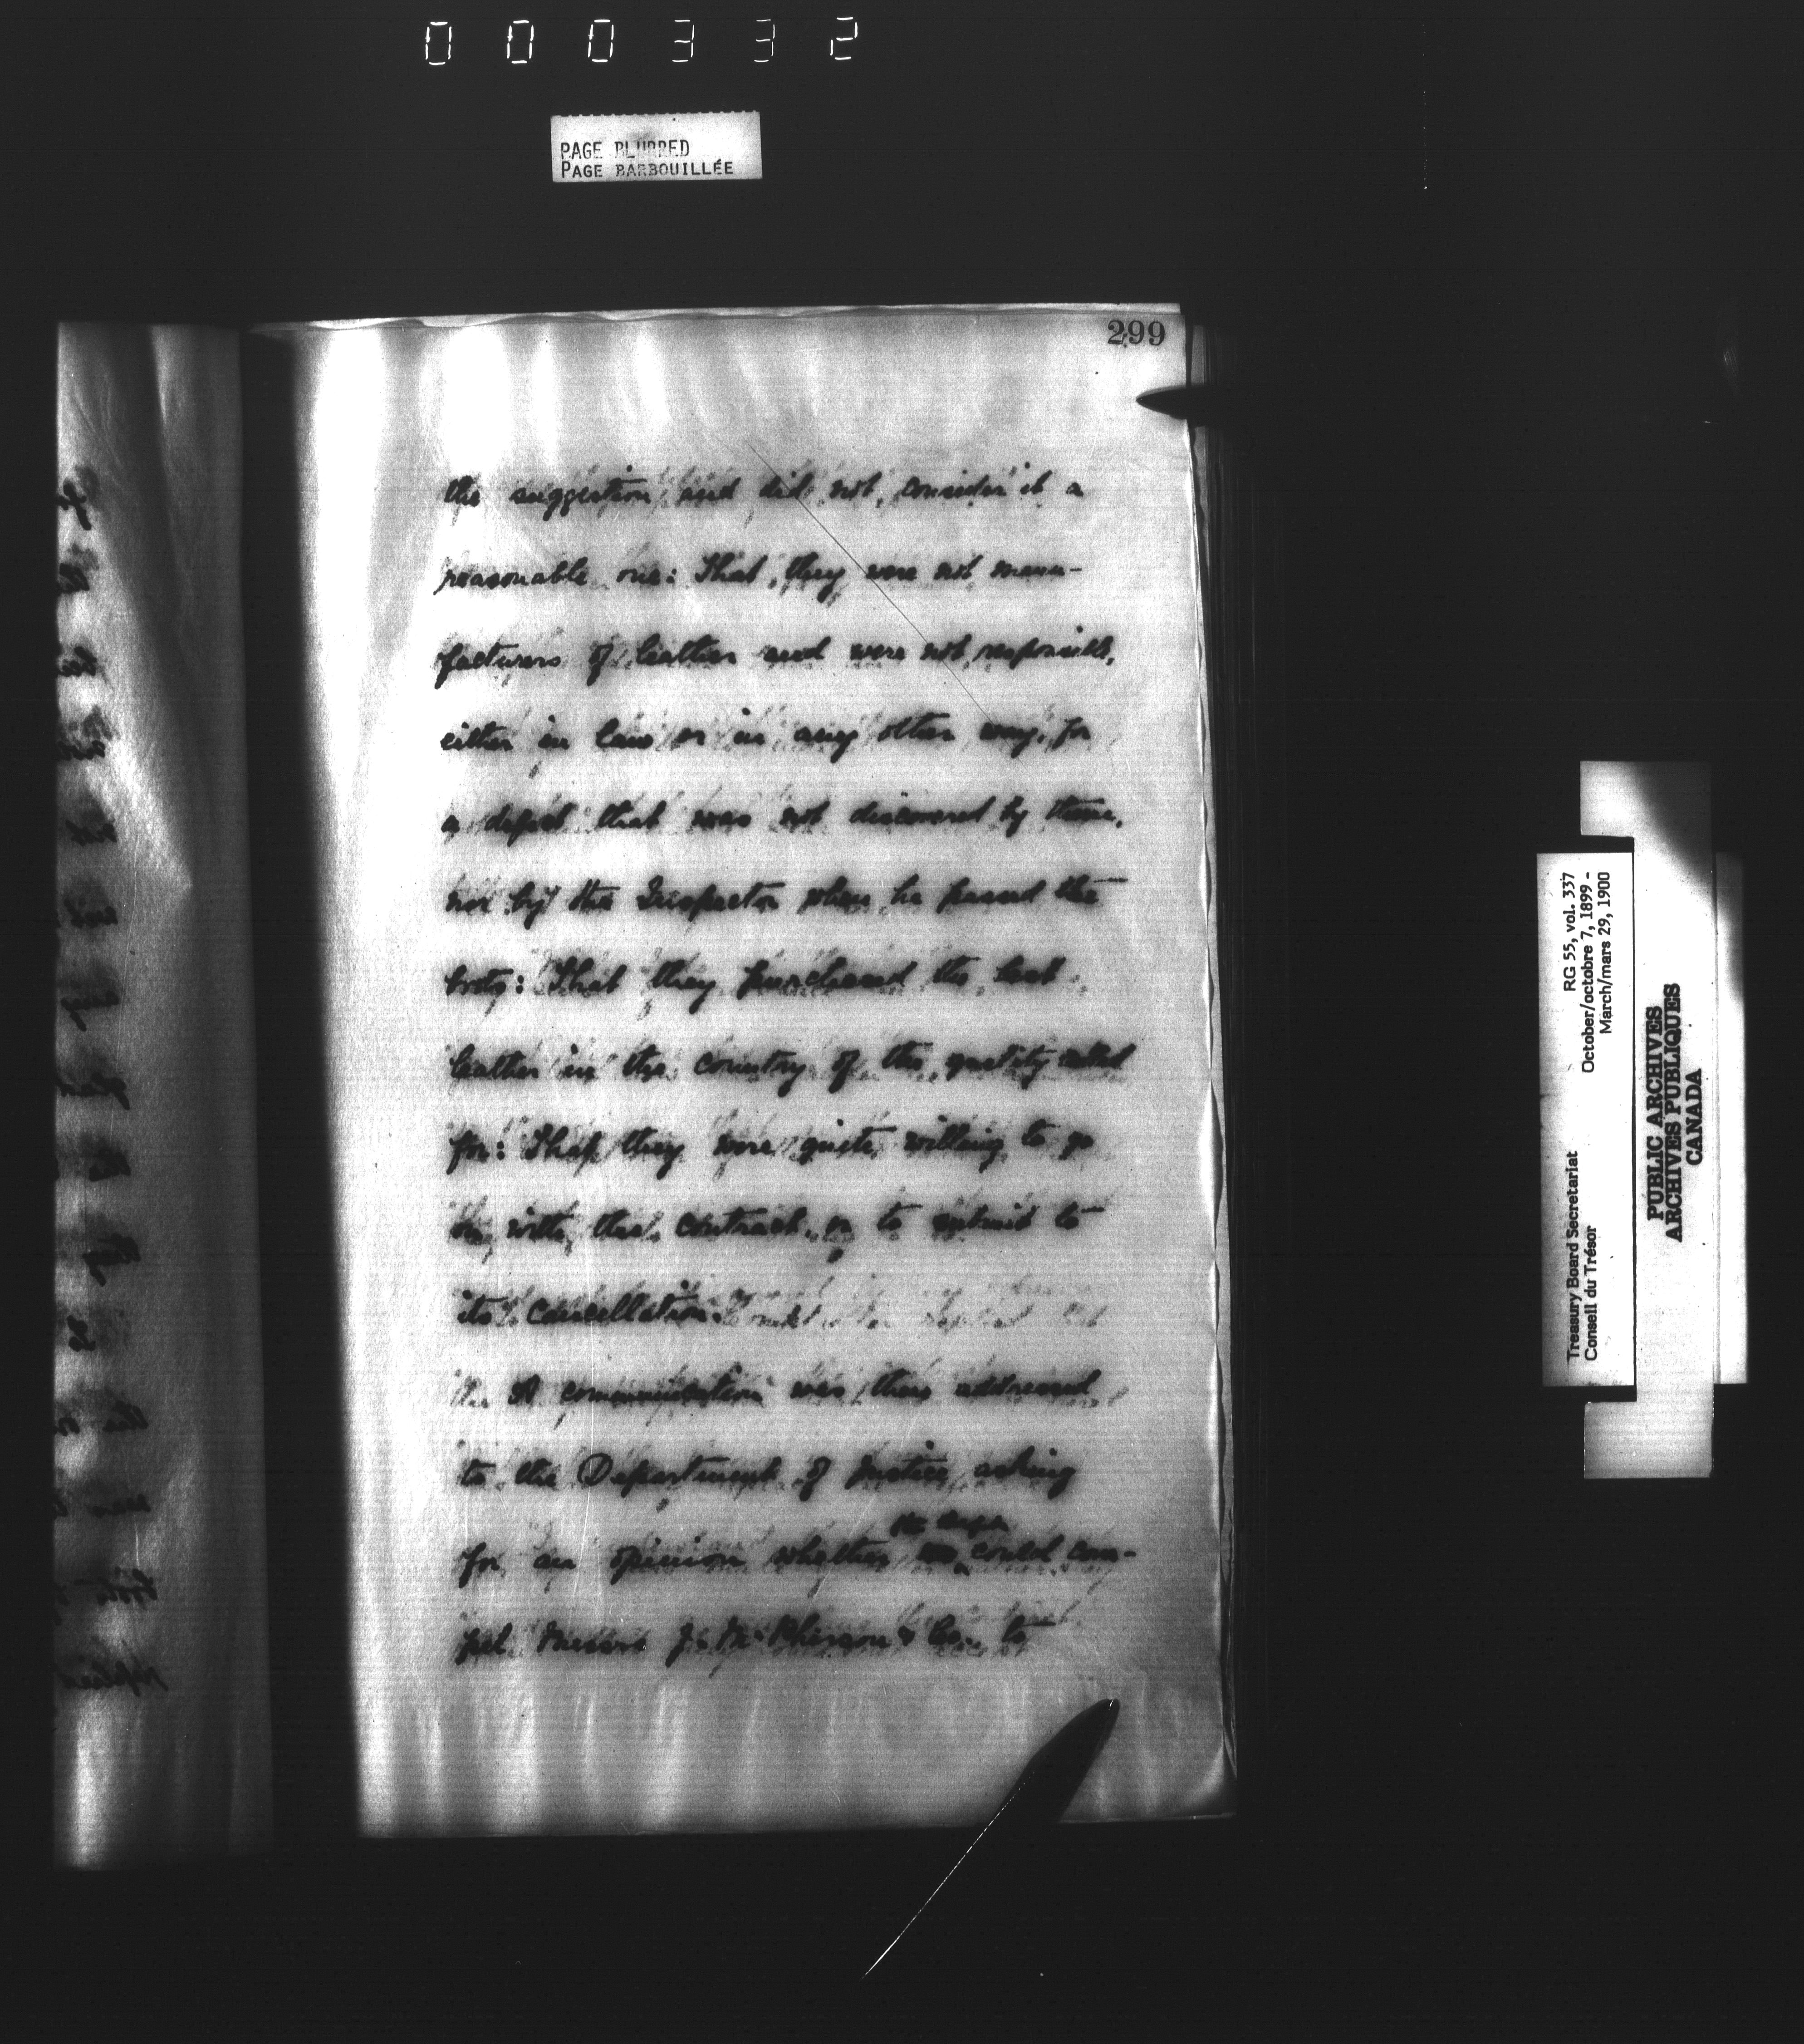 000332
PAGE BLURRED
PAGE BARBOUILLÉE
299
the suggestion and did not consider it a
reasonable one: That they were not manu-
facturers of leather and were not responsible,
either in law or in any other way, for
a defect that was not discovered by them,
nor by the Inspector when he passed the
boots: That they purchased the best
leather in the country of the quality called
for: That they were quite willing to go
on with the contract or to submit to
its cancellation.
A communication was then addressed
to the Department of Justice asking
the
for an opinion whether we could com-
pel Messrs J. McPherson & Co. to
RG 55, vol. 337
October/octobre 7, 1899 -
March/mars 29, 1900
Treasury Board Secretariat
Conseil du Trésor
PUBLIC ARCHIVES
ARCHIVES PUBLIQUES
CANADA